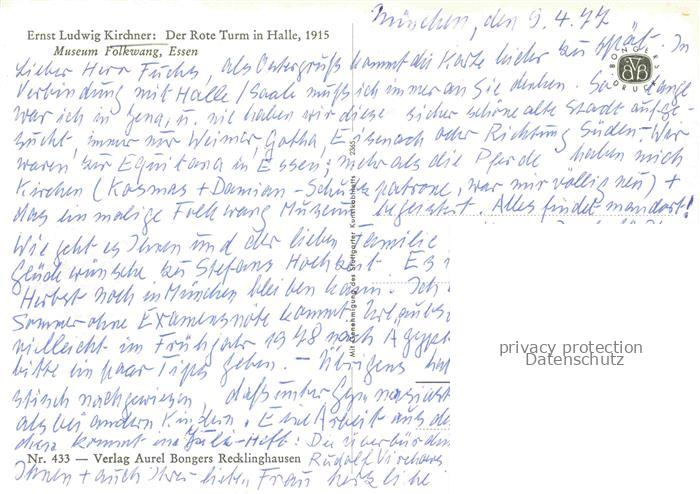 München, den 9.4.77
Ernst Ludwig Kirchner: Der Rote Turm in Halle, 1915
Museum Folkwang, Essen
BONGERS
DRUCK
Lieber Herr Fuchs, als Ostergruß kommt die Karte leider zu spät. In
Verbindung mit Halle/Saale muß ich immer an Sie denken. So lange
war ich in Jena, u. nie haben wir diese sicher schöne alte Stadt aufge-
sucht, immer nur Weimar, Gotha, Eisenach oder Richtung Süden. Wir
waren zur Equitana in Essen; mehr als die Pferde haben mich
Kirchen (Kosmas + Damian - Schutzpatrone, war mir völlig neu) +
das einmalige Folkwang Museum begeistert. Alles findet man dort!
Wie geht es Ihnen und der lieben Familie
Glückwünsche zu Stefans Hochzeit. Es
Herbst noch in München bleiben kann. Ich
Sommer ohne Examensnote kommt. Urlaubs
vielleicht im Frühjahr 1978 nach Ägypt
bitte ein paar Tips geben. - Übrigens hat
stisch nachgewiesen, daß unter
als bei andern Kindern. Eine Arbeit aus de
diese kommt ins Juli-Heft: Die Überbürdun
Nr. 433 — Verlag Aurel Bongers Recklinghausen
Rudolf Virchows
Ihnen + auch Ihrer lieben Frau herzliche
Mit Genehmigung des Stuttgarter Kunstkabinetts 2365
privacy protection
Datenschutz